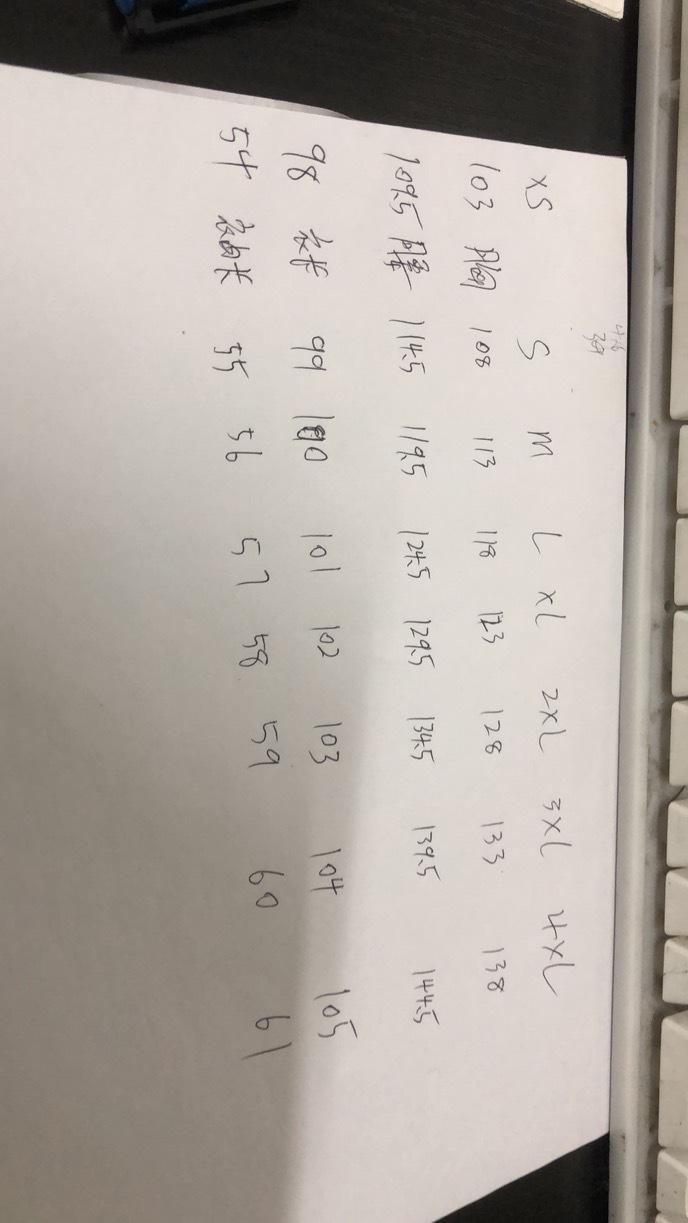 XS S M L XL 2XL 3XL 4XL
103 胸 108 113 118 123 128 133 138
109.5 114.5 119.5 124.5 129.5 134.5 139.5 144.5
98 衣长 99 100 101 102 103 104 105
54 衣内长 55 56 57 58 59 60 61